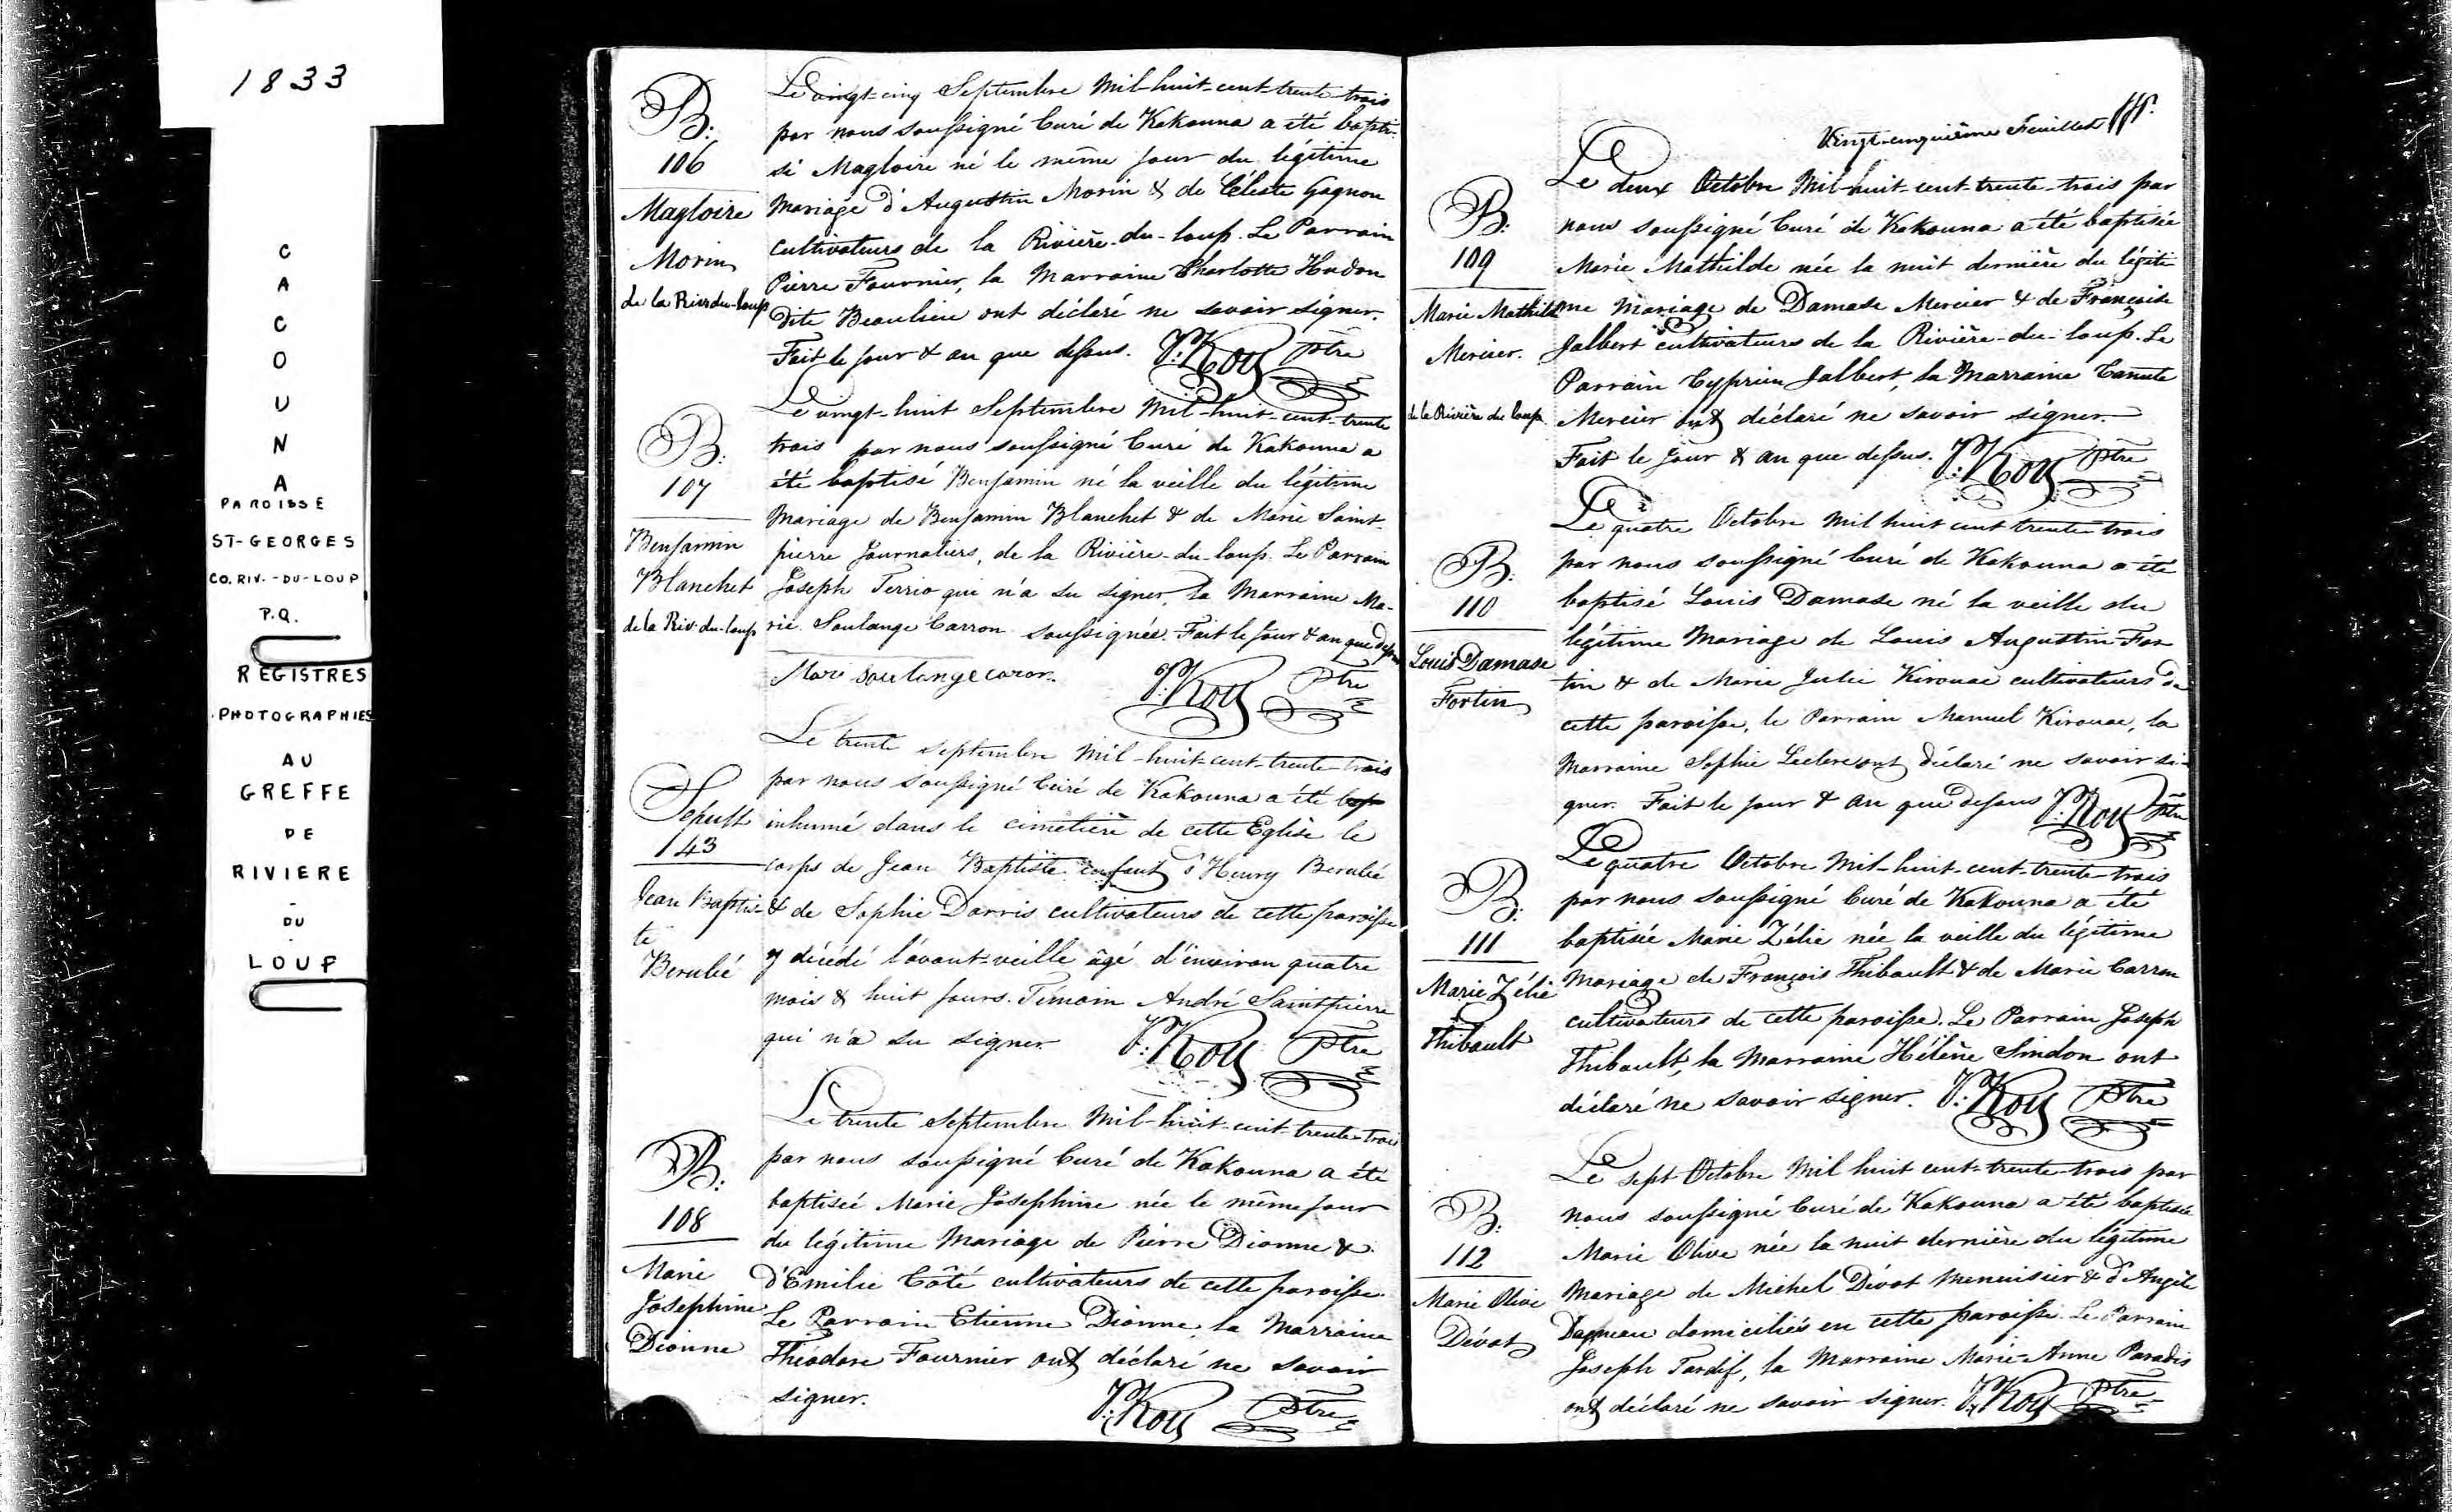 1833
C
A
C
O
U
N
A
PAROISSE
ST-GEORGES
CO. RIV.-DU-LOUP
P.Q.
REGISTRES
PHOTOGRAPHIES
AU
GREFFE
DE
RIVIERE
-
DU
-
LOUP
B:
106
Magloire
Morin
de la Riv: du-loup
Le vingt-cinq Septembre Mil-huit-cent-trente-trois
par nous soussigné Curé de Kakouna a été bapti-
sé Magloire né le même jour du légitime
Mariage d'Augustin Morin & de Céleste Gagnon
Cultivateurs de la Rivière-du-loup. Le Parrain
Pierre Fournier, la Marraine Charlotte Hudon
dite Beaulieu ont déclaré ne savoir signer.
Fait le jour & an que dessus. J: Roy Ptre
B:
107
Benjamin
Blanchet
de la Riv: du-loup
Le vingt-huit Septembre Mil-huit-cent-trente
trois par nous soussigné Curé de Kakouna a
été baptisé Benjamin né la veille du légitime
Mariage de Benjamin Blanchet & de Marie Saint-
pierre Journaliers, de la Rivière-du-loup. Le Parrain
Joseph Terrio qui n'a su signer, la Marraine Ma-
rie Soulange Carron soussignée. Fait le jour & an que dessus
Mari Soulange caron. J: Roy Ptre
Sépult
143
Jean Baptis
te
Berubé
Le trente septembre Mil-huit-cent-trente-trois
par nous soussigné Curé de Kakouna a été bap
inhumé dans le cimetière de cette Eglise le
corps de Jean Baptiste enfant d'Henry Berubé
& de Sophie Darris cultivateurs de cette paroisse
y décédé l'avant-veille âgé d'environ quatre
mois & huit jours. Témoin André Saintpierre
qui n'a su signer. J: Roy Ptre
B:
108
Marie
Josephine
Dionne
Le trente Septembre Mil-huit-cent-trente-trois
par nous soussigné Curé de Kakouna a été
baptisée Marie Josephine née le même jour
du légitime Mariage de Pierre Dionne &
d'Emilie Côté cultivateurs de cette paroisse.
Le Parrain Etienne Dionne, la Marraine
Théodore Fournier ont déclaré ne savoir
signer. J: Roy Ptre
Vingt-cinquième Feuillet
B:
109
Marie Mathild
Mercier.
de la Rivière du loup
Le deux Octobre Mil-huit-cent-trente-trois par
nous soussigné Curé de Kakouna a été baptisée
Marie Mathilde née la nuit dernière du légiti
me Mariage de Damase Mercier & de Françoise
Jalbert cultivateurs de la Rivière-du-loup. Le
Parrain Cyprien Jalbert, la Marraine Tanute
Mercier ont déclaré ne savoir signer.
Fait le jour & an que dessus. J: Roy Ptre
B:
110
Louis Damase
Fortin
Le quatre Octobre Mil huit cent trente-trois
par nous soussigné Curé de Kakouna a été
baptisé Louis Damase né la veille du
légitime Mariage de Louis Augustin For
tin & de Marie Julie Kirouac cultivateurs de
cette paroisse, le Parrain Manuel Kirouac, la
Marraine Sophie Leclerc ont déclaré ne savoir si-
gner. Fait le jour & an que dessus J: Roy Ptre
B:
111
Marie Zélie
Thibault
Le quatre Octobre Mil-huit-cent-trente-trois
par nous soussigné Curé de Kakouna a été
baptisée Marie Zélie née la veille du légitime
Mariage de François Thibault & de Marie Carron
cultivateurs de cette paroisse. Le Parrain Joseph
Thibault, la Marraine Hélène Sindon ont
déclaré ne savoir signer. J: Roy Ptre
B:
112
Marie Olive
Dévot
Le sept Octobre Mil huit cent-trente-trois par
nous soussigné Curé de Kakouna a été baptisée
Marie Olive née la nuit dernière du légitime
Mariage de Michel Dévot Menuisier & d'Angèle
Dagneau domiciliés en cette paroisse. Le Parrain
Joseph Tardif, la Marraine Marie-Anne Paradis
ont déclaré ne savoir signer. J: Roy Ptre